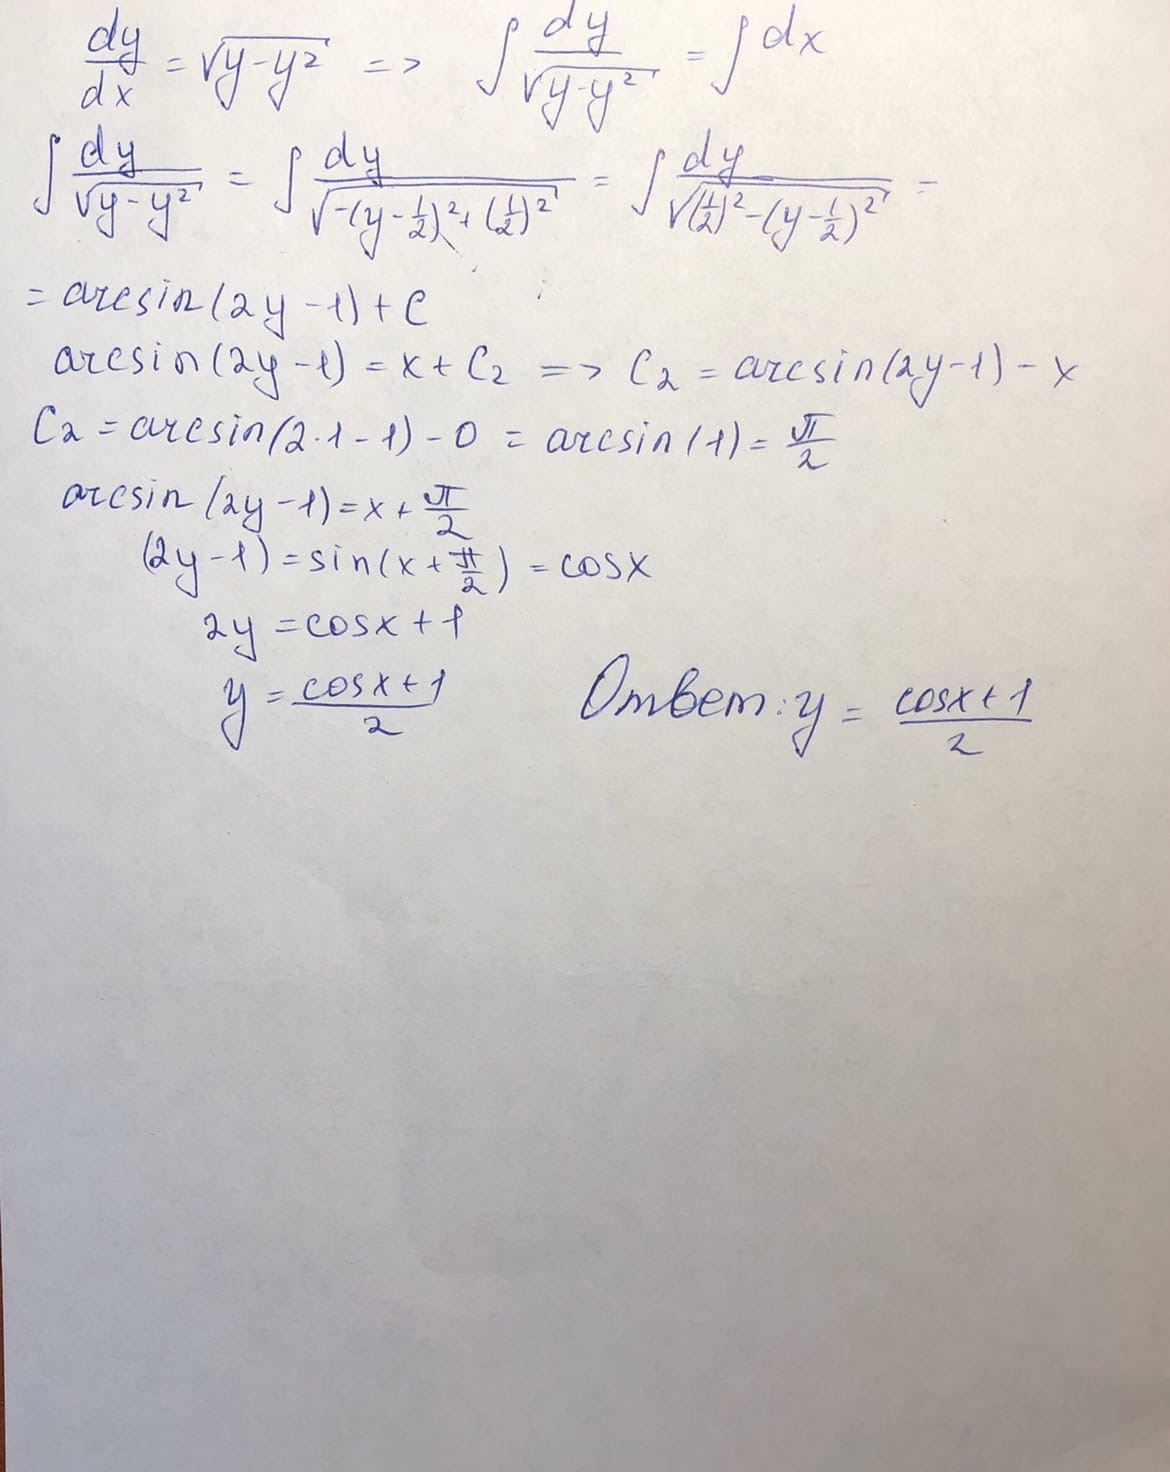 dy/dx = √(y-y²) => ∫ dy/√(y-y²) = ∫ dx
∫ dy/√(y-y²) = ∫ dy/√(-(y-1/2)²+(1/2)²) = ∫ dy/√((1/2)²-(y-1/2)²) =
= arcsin(2y-1)+C
arcsin(2y-1) = x+C₂ => C₂ = arcsin(2y-1)-x
C₂ = arcsin(2·1-1)-0 = arcsin(1) = π/2
arcsin(2y-1) = x+π/2
(2y-1) = sin(x+π/2) = cosx
2y = cosx+1
y = (cosx+1)/2 Ответ: y = (cosx+1)/2